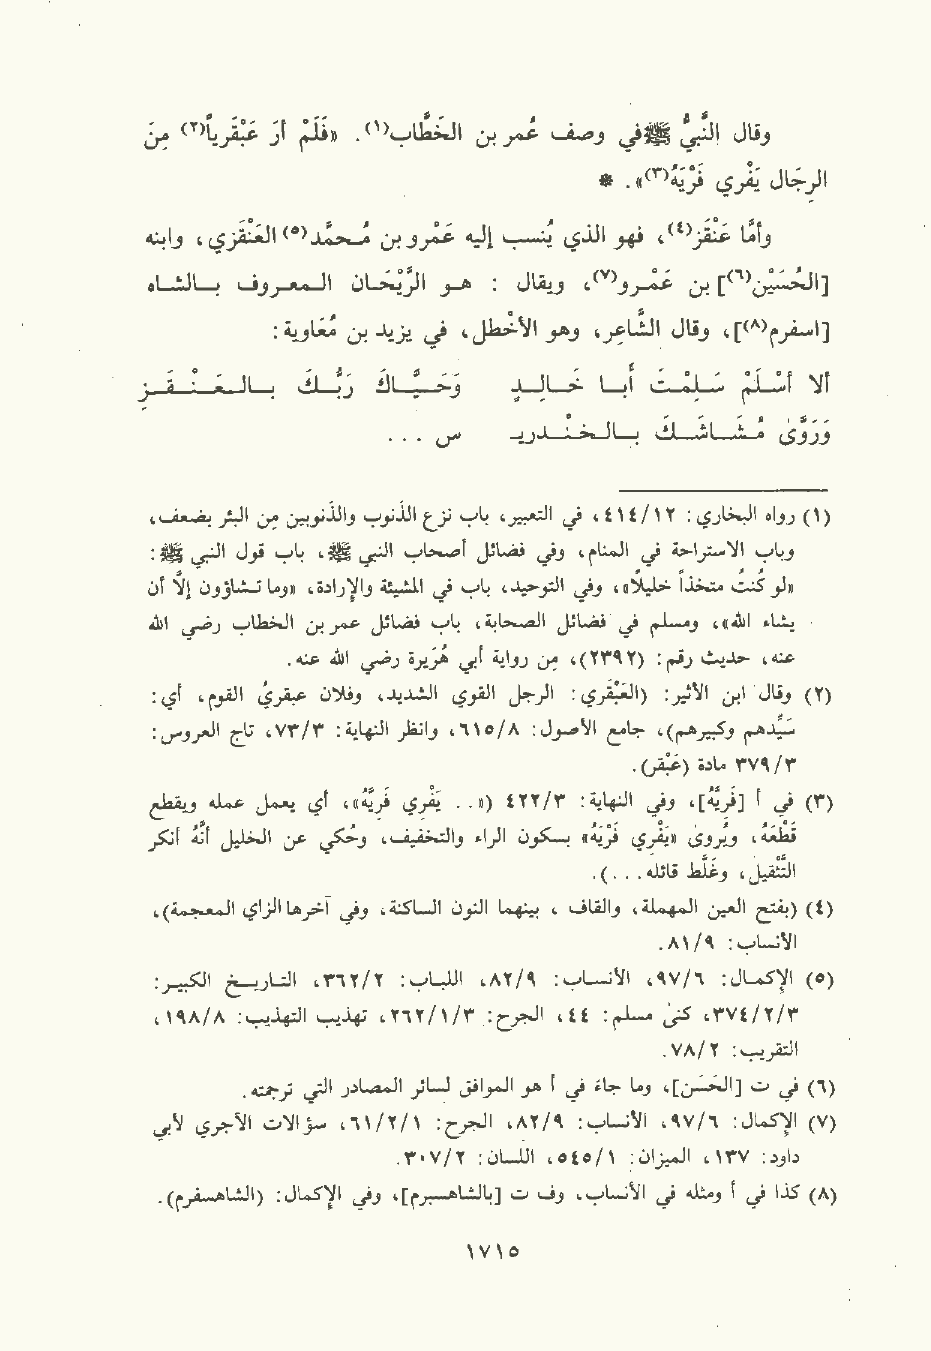 وقال النَّبيُّ ﷺ في وصف عُمر بن الخَطَّاب(١). «فَلَمْ أرَ عَبْقَرِياً(٢) مِنَ
الرِجَال يَفْري فَرْيَهُ(٣)». *
وأمّا عَنْقَز(٤)، فهو الذي يُنسب إليه عَمْرو بن مُحَمَّد(٥) العَنْقَزي، وابنه
[الحُسَيْن(٦)] بن عَمْرو(٧)، ويقال : هو الرَّيْحَان المعروف بالشاه
[اسفرم(٨)]، وقال الشّاعر، وهو الأخْطل، في يزيد بن مُعَاوية:
ألا أسْلَمْ سَلِمْتَ أبا خَالِدٍ وَحَيَّاكَ رَبُّكَ بالعَنْقَزِ
وَرَوَّى مُشَاشَكَ بالخَنْدريـ س ...
(١) رواه البخاري: ٤١٤/١٢، في التعبير، باب نزع الذَنوب والذَنوبين مِن البئر بضعف،
وباب الاستراحة في المنام، وفي فضائل أصحاب النبي ﷺ، باب قول النبي ﷺ:
«لو كُنتُ متخذاً خليلاً»، وفي التوحيد، باب في المشيئة والإرادة، «وما تشاؤون إلاّ أن
يشاء الله»، ومسلم في فضائل الصحابة، باب فضائل عمر بن الخطاب رضي الله
عنه، حديث رقم: (٢٣٩٢)، مِن رواية أبي هُرَيرة رضي الله عنه.
(٢) وقال ابن الأثير: (العَبْقَري: الرجل القوي الشديد، وفلان عبقريُ القوم، أي:
سَيِّدهم وكبيرهم)، جامع الأصول: ٦١٥/٨، وانظر النهاية: ٧٣/٣، تاج العروس:
٣٧٩/٣ مادة (عَبْقر).
(٣) في أ [فَرِيَّهُ]، وفي النهاية: ٤٢٢/٣ («.. يَفْري فَرِيَّهُ»، أي يعمل عمله ويقطع
قَطْعَهُ، ويُروىٰ «يَفْري فَرْيَهُ» بسكون الراء والتخفيف، وحُكي عن الخليل أنَّهُ أنكر
التَّثقيل، وغَلَّط قائله...).
(٤) (بفتح العين المهملة، والقاف ، بينهما النون الساكنة، وفي آخرها الزاي المعجمة)،
الأنساب: ٨١/٩.
(٥) الإكمال: ٩٧/٦، الأنساب: ٨٢/٩، اللباب: ٣٦٢/٢، التاريخ الكبير:
٣٧٤/٢/٣، كنىٰ مسلم: ٤٤، الجرح: ٢٦٢/١/٣، تهذيب التهذيب: ١٩٨/٨،
التقريب: ٧٨/٢.
(٦) في ت [الحَسَن]، وما جاءَ في أ هو الموافق لسائر المصادر التي ترجمته.
(٧) الإكمال: ٩٧/٦، الأنساب: ٨٢/٩، الجرح: ٦١/٢/١، سؤالات الأجري لأبي
داود: ١٣٧، الميزان: ٥٤٥/١، اللسان: ٣٠٧/٢.
(٨) كذا في أ ومثله في الأنساب، وفي ت [بالشاهسبرم]، وفي الإكمال: (الشاهسفرم).
١٧١٥